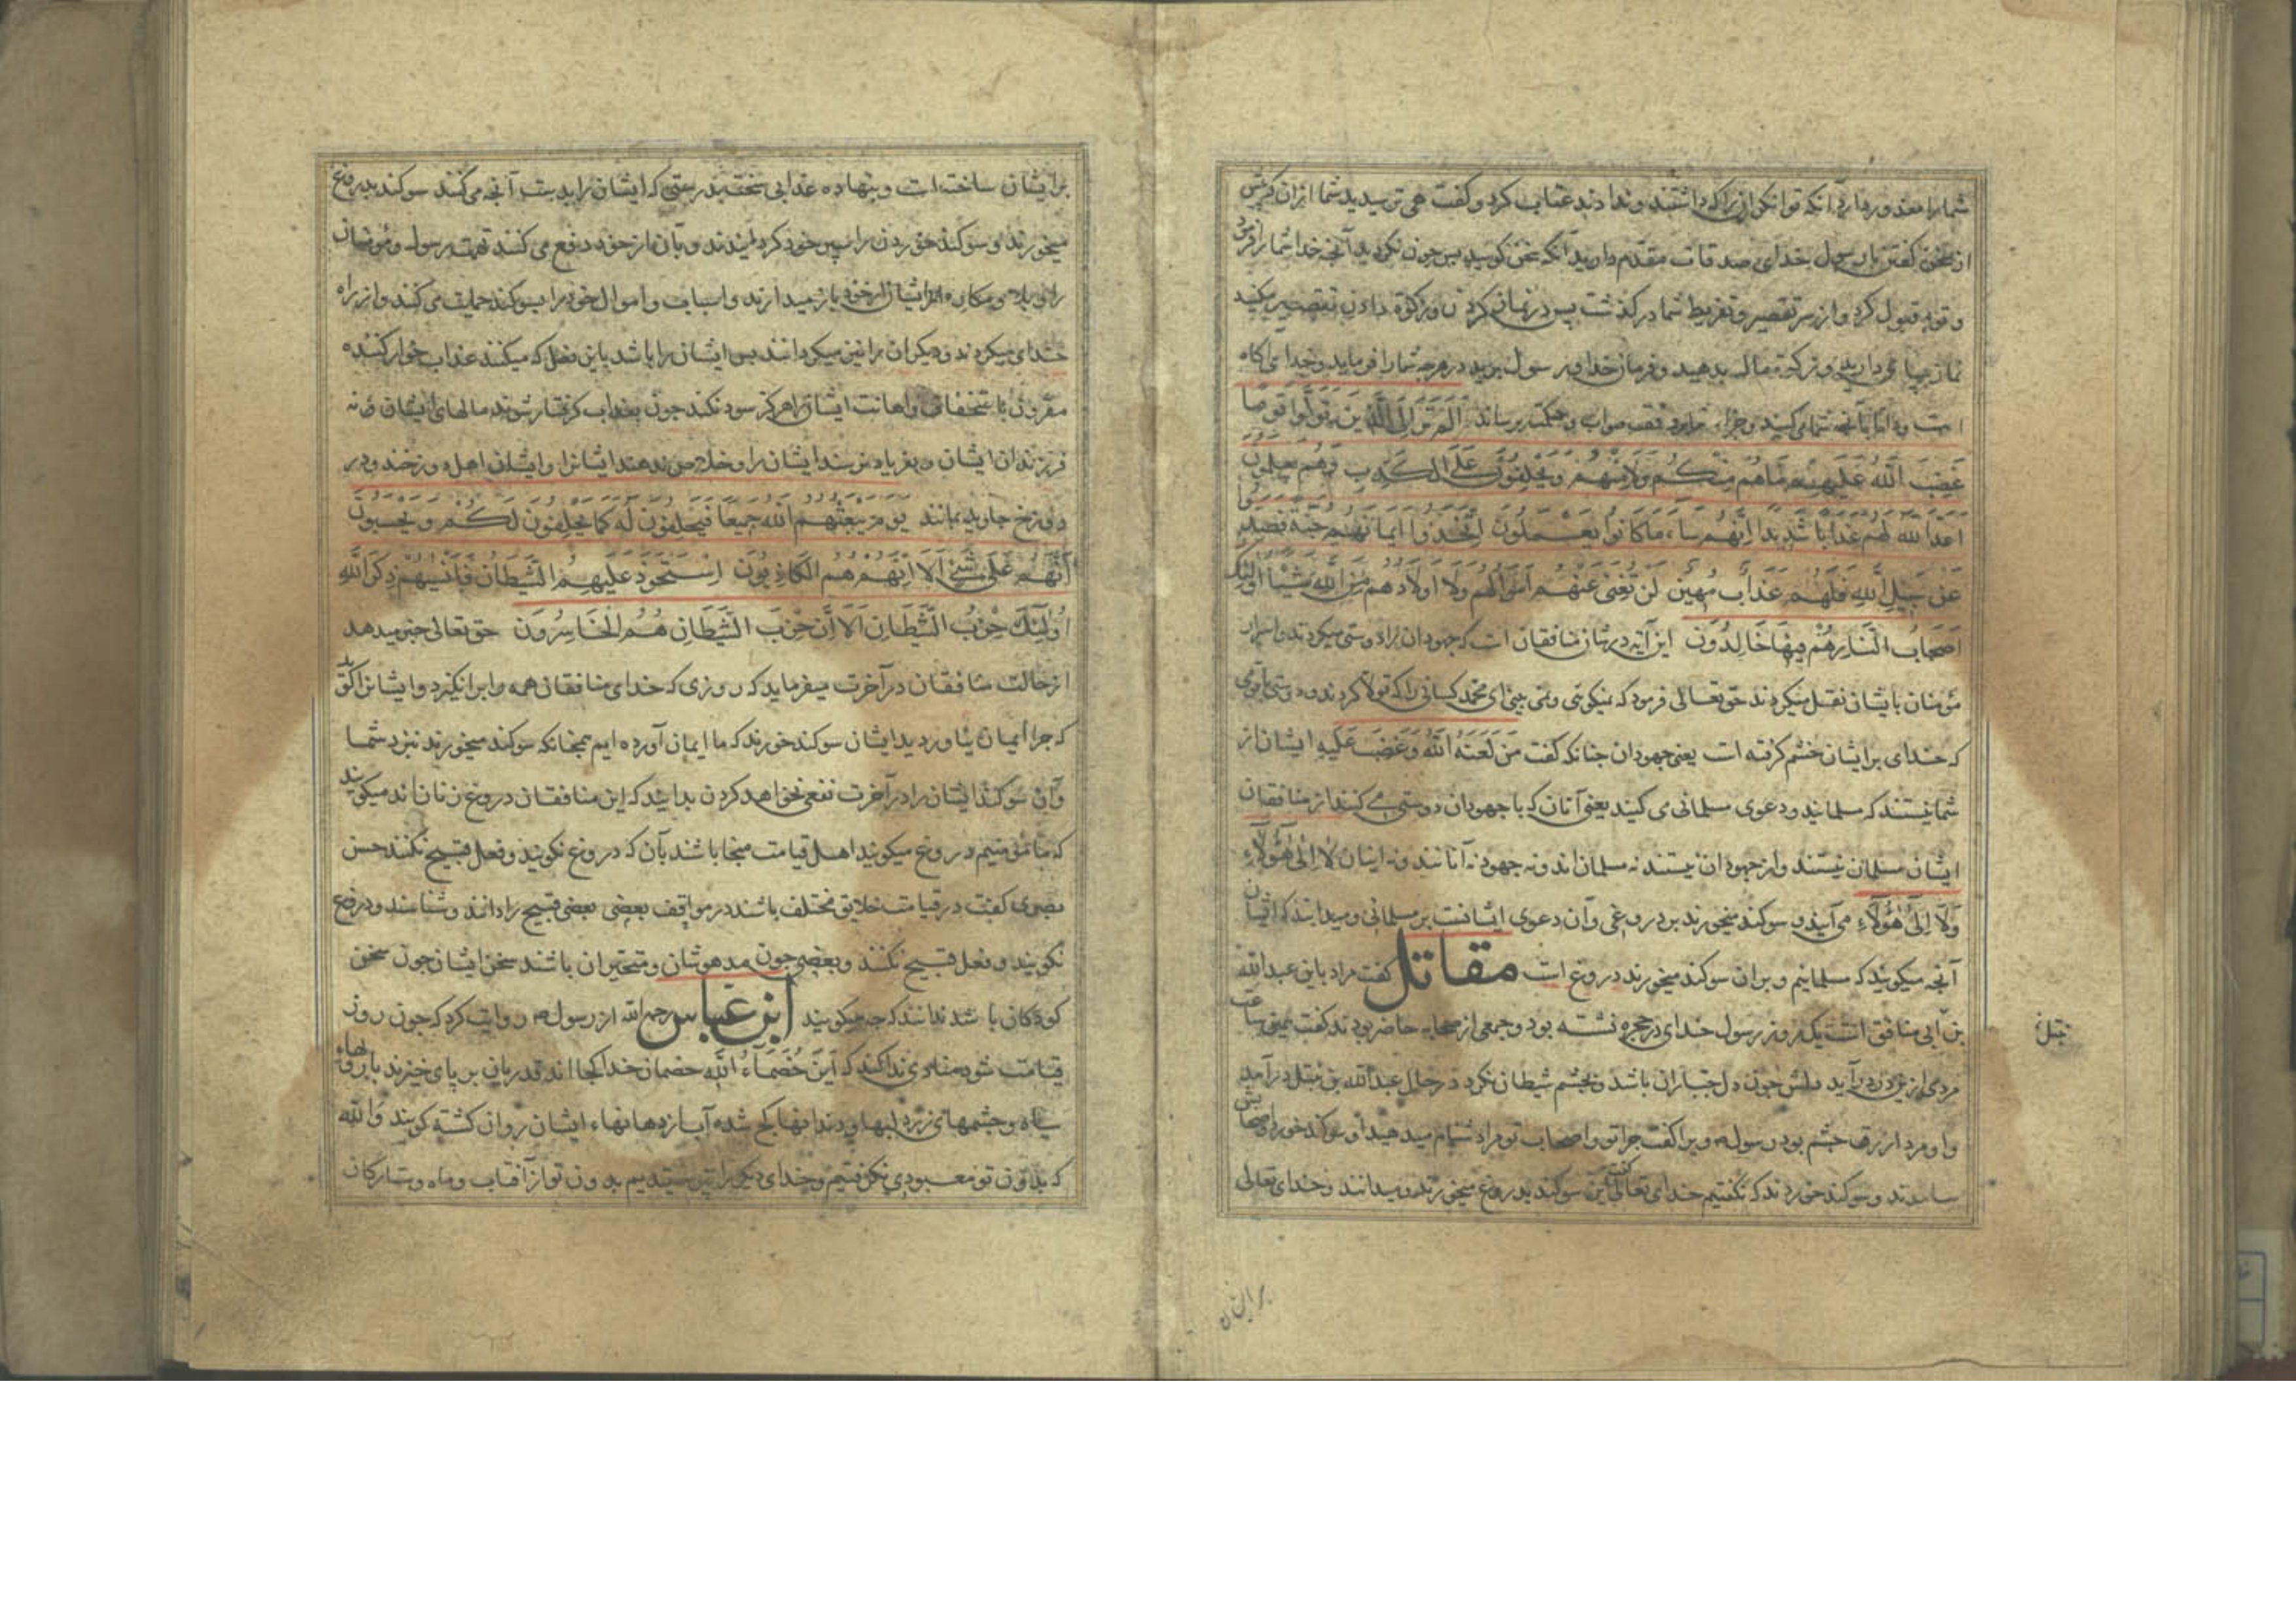 شما را معذور دارد آنکه توانگران را که داشتند و ندادند عتاب کرد و گفت هی ترسیدید شما ازان
از سخن گفتن با رسول خدای صدقات مقدم دارید آنکه سخن گوئید پس چون نکردید آنچه خدا شما را فرمود
و توبه قبول کرد و از سر تقصیر و تفریط شما در گذشت پس در نماز کردن و زکوة دادن تقصیر مکنید
نماز بپای دارید و زکوة مال بدهید و فرمان خدا و رسول برید در هر چه شما را فرماید و خدای آگاه
است و دانا بآنچه شما می‌کنید و جزاء بر وفق صواب و حکمت برساند اَلَمْ تَرَ اِلَی الَّذینَ تَوَلَّوْا قَوْمًا
غَضِبَ اللّهُ عَلَیْهِمْ مَاهُمْ مِنْکُمْ وَلَا مِنْهُمْ وَیَحْلِفُونَ عَلَی الْکَذِبِ وَهُمْ یَعْلَمُونَ
اَعَدَّ اللّهُ لَهُمْ عَذَابًا شَدِیدًا اِنَّهُمْ سَاءَ مَاکَانُوا یَعْمَلُونَ اِتَّخَذُوا اَیْمَانَهُمْ جُنَّةً فَصَدُّوا
عَنْ سَبِیلِ اللّهِ فَلَهُمْ عَذَابٌ مُهِینٌ لَنْ تُغْنِیَ عَنْهُمْ اَمْوَالُهُمْ وَلَا اَوْلَادُهُمْ مِنَ اللّهِ شَیْئًا اُولئِکَ
اَصْحَابُ النَّارِ هُمْ فِیهَا خَالِدُونَ این آیه در شان منافقان است که جهودان را دوستی میکردند و اسرار
مؤمنان بایشان نقل میکردند حق تعالی فرمود که نیکوئی و نمی بینی ای محمد کسانی را که تولا کردند و دوستی با قومی
که خدای بر ایشان خشم گرفته است یعنی جهودان چنانکه گفت مَنْ لَعَنَهُ اللّهُ وَغَضِبَ عَلَیْهِ ایشان از
شما نیستند که مسلمانید و دعوی مسلمانی می کنید یعنی آنان که با جهودان دوستی می کنند از منافقان
ایشان مسلمان نیستند و از جهودان نیستند نه مسلمان اند و نه جهود نه آنانند و نه اینان لَا اِلٰی هٰؤُلَاءِ
وَلَا اِلٰی هٰؤُلَاءِ می آیند و سوگند میخورند بر دروغی و آن دعوی ایشانست بر مسلمانی و میدانند که ایشان
آنچه میگویند که مسلمانیم و بران سوگند میخورند دروغ است مقاتل گفت مراد باین عبدالله
بن ابی منافق است یک روز رسول خدای در حجره نشسته بود و جمعی از صحابه حاضر بودند گفت همین ساعت
مردی ازین در درآید دلش چون دل جباران باشد و بچشم شیطان نگرد در حال عبدالله بن نبتل درآمد
و او مرد ازرق چشم بود رسول ویرا گفت چرا تو و اصحاب تو مرا دشنام میدهید او سوگند خورد و اصحابش
بیامدند و سوگند خوردند که نگفتیم خدای تعالی گفت این سوگند بدروغ میخورند و میدانند و خدای تعالی
نبتل
برایشان
بر ایشان ساخته است و بنهاده عذابی سخت بدرستی که ایشان را بد است آنچه می‌کنند سوگند بدروغ
میخورند و سوگند خوردن را سپر خود کرده‌اند و بآن از خود دفع می کنند تهمت رسول و مؤمنان
را و بلا و مکاره را ازیشان از خود باز میدارند و اسباب و اموال خود را بسوگند حمایت می کنند و از راه
خدای میگردند و دیگران را نیز میگردانند پس ایشان را باشد باین فعل که میکنند عذاب خوار کننده
مقرون باستخفاف و اهانت ایشان را هرگز سود نکند چون بعذاب گرفتار شوند مالهای ایشان و نه
فرزندان ایشان و بفریاد نرسند ایشان را و خلاص ندهند ایشانرا و ایشان اهل دوزخند و در
دوزخ جاوید بمانند یَوْمَ یَبْعَثُهُمُ اللّهُ جَمِیعًا فَیَحْلِفُونَ لَهُ کَمَا یَحْلِفُونَ لَکُمْ وَیَحْسَبُونَ
اَنَّهُمْ عَلٰی شَیْءٍ اَلَا اِنَّهُمْ هُمُ الْکَاذِبُونَ اِسْتَحْوَذَ عَلَیْهِمُ الشَّیْطَانُ فَاَنْسٰیهُمْ ذِکْرَ اللّهِ
اُولٰئِکَ حِزْبُ الشَّیْطَانِ اَلَا اِنَّ حِزْبَ الشَّیْطَانِ هُمُ الْخَاسِرُونَ حق تعالی خبر میدهد
از حالت منافقان در آخرت میفرماید که روزی که خدای منافقان همه را برانگیزد و ایشانرا گوید
که چرا ایمان نیاوردید ایشان سوگند خورند که ما ایمان آورده ایم همچنانکه سوگند میخورند نزد شما
و آن سوگند ایشان را در آخرت نفعی نخواهد کردن بدانید که این منافقان دروغ زنان اند میگویند
که ما مؤمنیم دروغ میگویند اهل قیامت ملجا باشند بآن که دروغ نگویند و فعل قبیح نکنند حسن
بصری گفت در قیامت خلایق مختلف باشند در مواقف بعضی بعضی قبیح را دانند و شناسند و دروغ
نگویند و فعل قبیح نکنند و بعضی چون مدهوشان و متحیران باشند سخن ایشان چون سخن
کودکان باشد ندانند که چه میگویند ابن عباس رحمه الله از رسول ص روایت کرد که چون روز
قیامت شود منادی ندا کند که اَیْنَ خُصَمَاءُ اللّهِ خصمان خدا کجا اند قدریان بر پای خیزند با رویهاء
سیاه و چشمهای زرد لبها و دندانها کج شده آب از دهانهاء ایشان روان گشته گویند وَاللّه
که بدون تو معبودی نگرفتیم و خدای دیگر را نپرستیدیم بدون تو از آفتاب و ماه و ستارگان